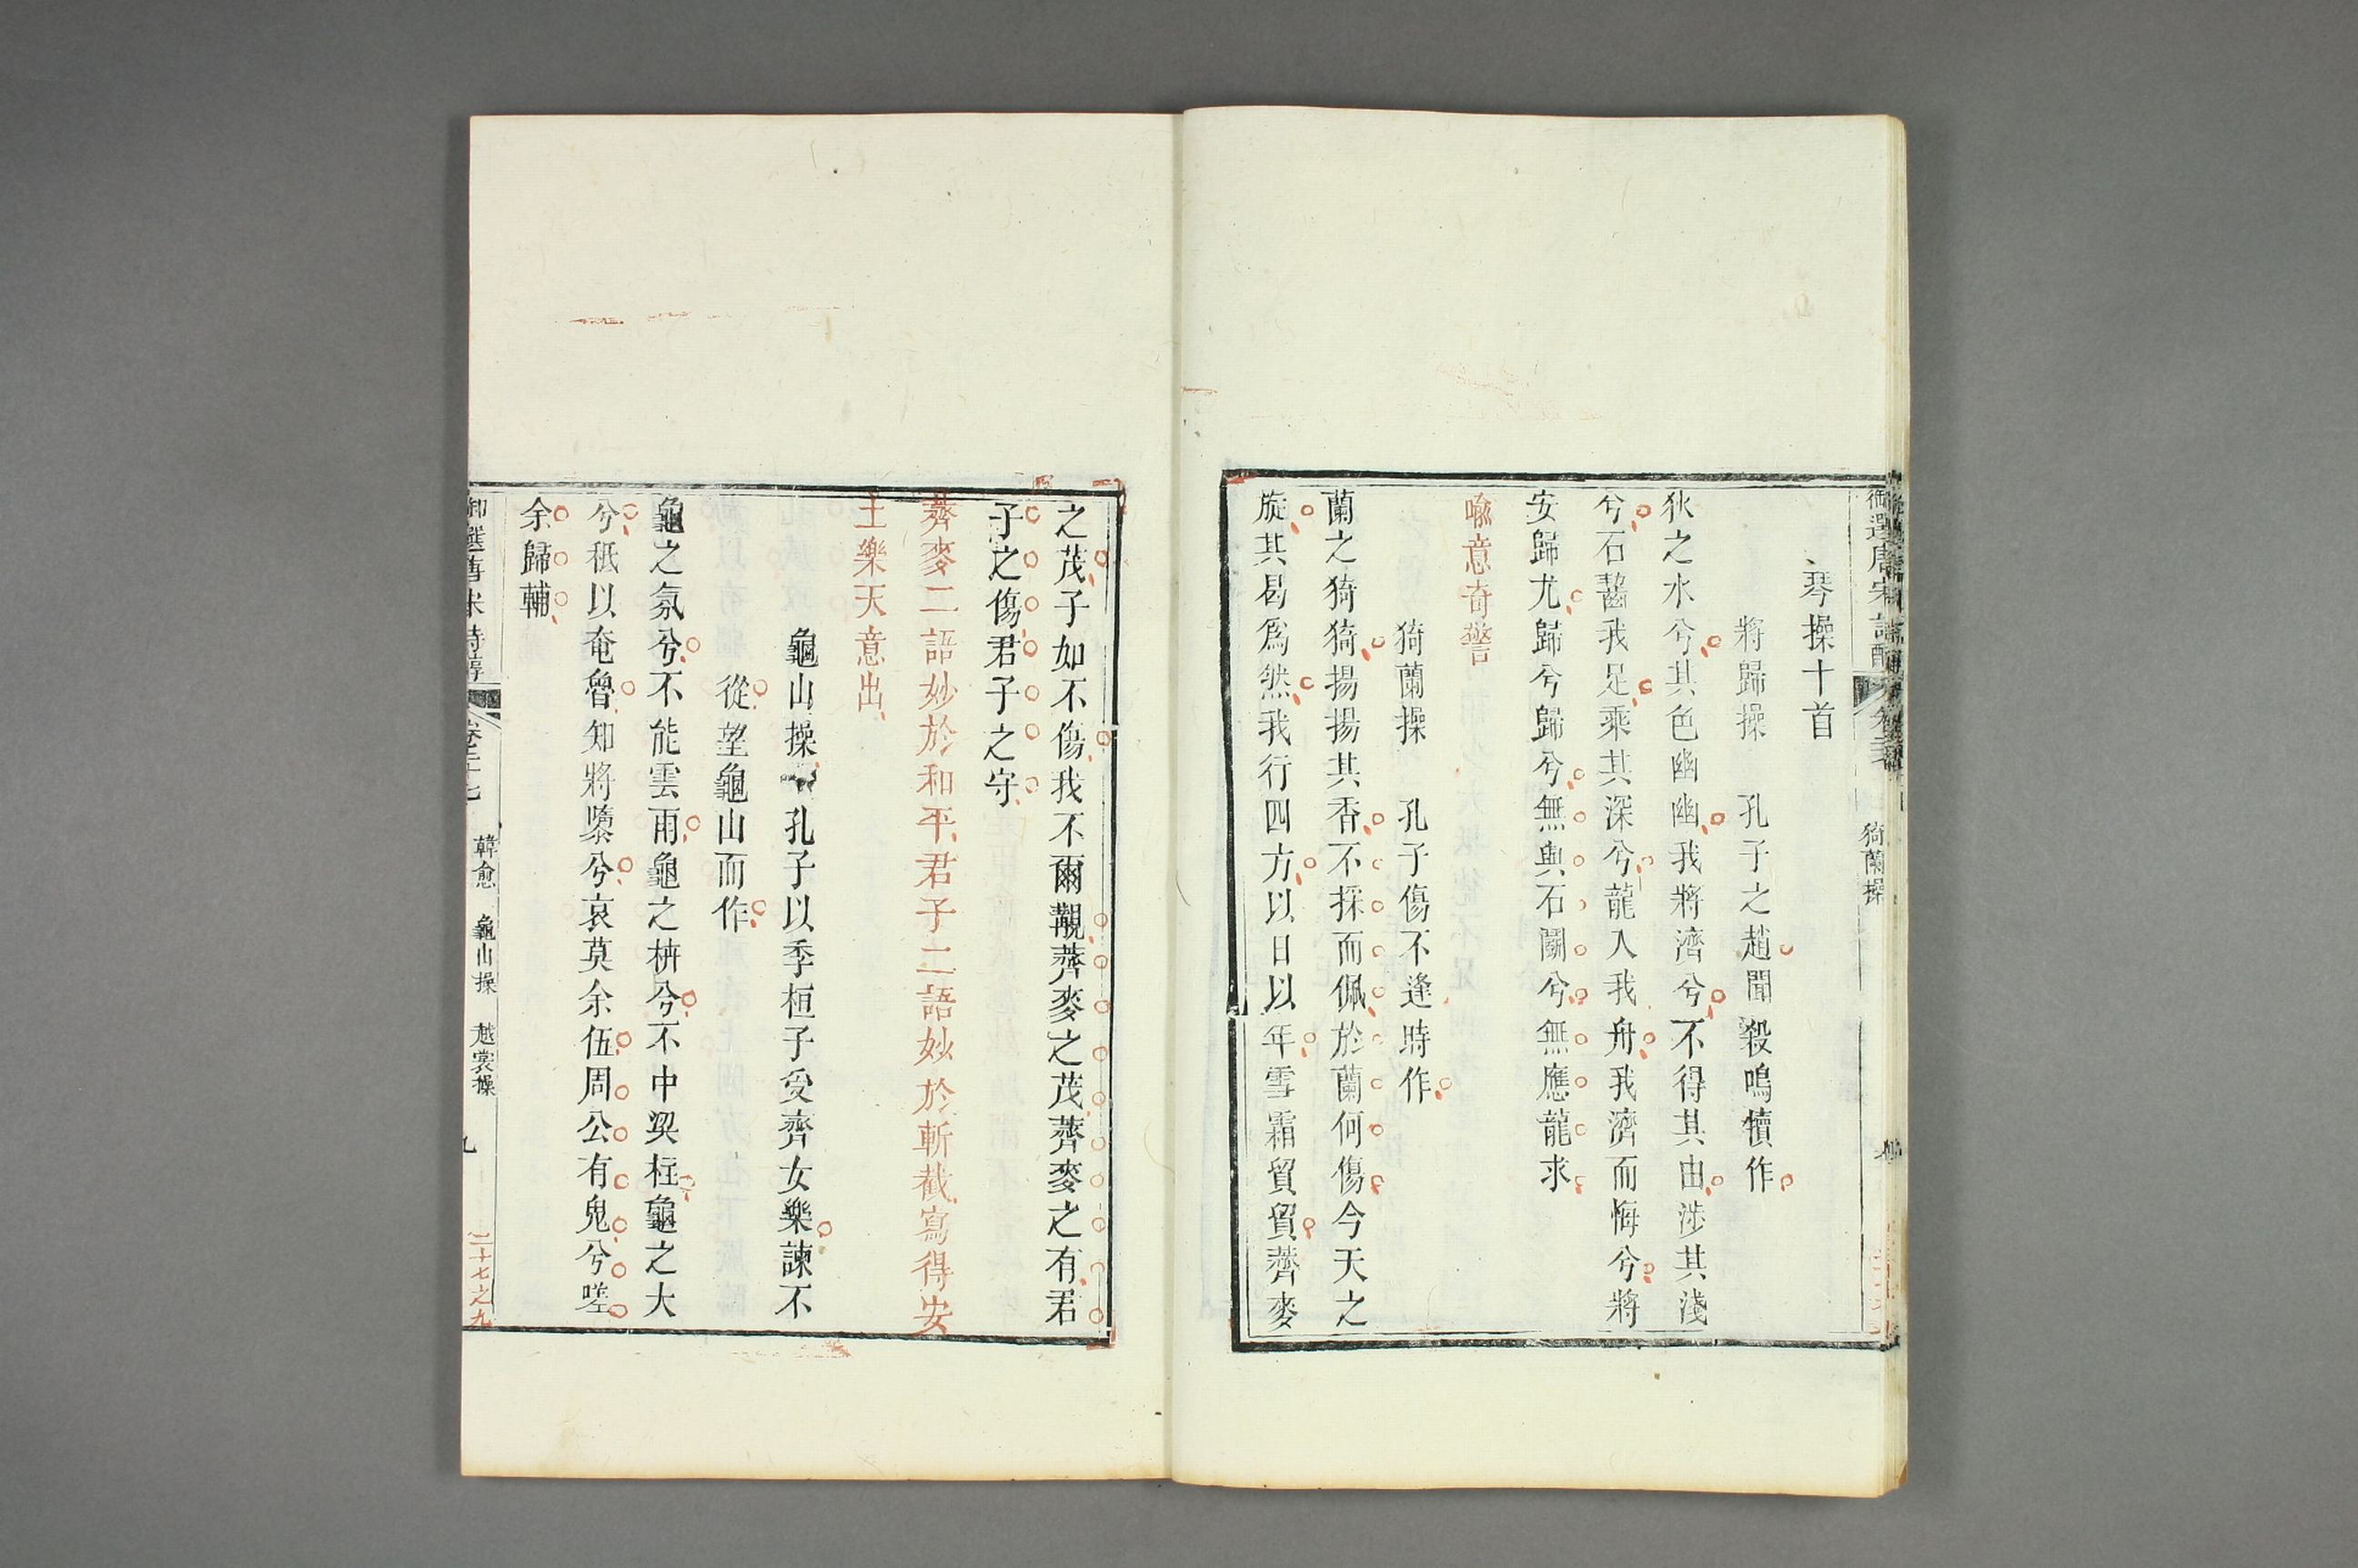 琴操十首
將歸操 孔子之趙聞殺鳴犢作
狄之水兮其色幽幽我將濟兮不得其由涉其淺
兮石齧我足乘其深兮龍入我舟我濟而悔兮將
安歸尤歸兮歸兮無與石鬭兮無應龍求
喩意奇警
猗蘭操 孔子傷不逢時作
蘭之猗猗揚揚其香不採而佩於蘭何傷今天之
旋其曷爲然我行四方以日以年雪霜貿貿薺麥
猗蘭操
之茂子如不傷我不爾覯薺麥之茂薺麥之有君
子之傷君子之守
薺麥二語妙於和平君子二語妙於斬截寫得安
土樂天意出
龜山操 孔子以季桓子受齊女樂諫不
從望龜山而作
龜之氛兮不能雲雨龜之枿兮不中梁柱龜之大
兮秖以奄魯知將隳兮哀莫余伍周公有鬼兮嗟
余歸輔
御選唐宋詩醇 卷二十七 韓愈 龜山操 越裳操 九
二十七之九